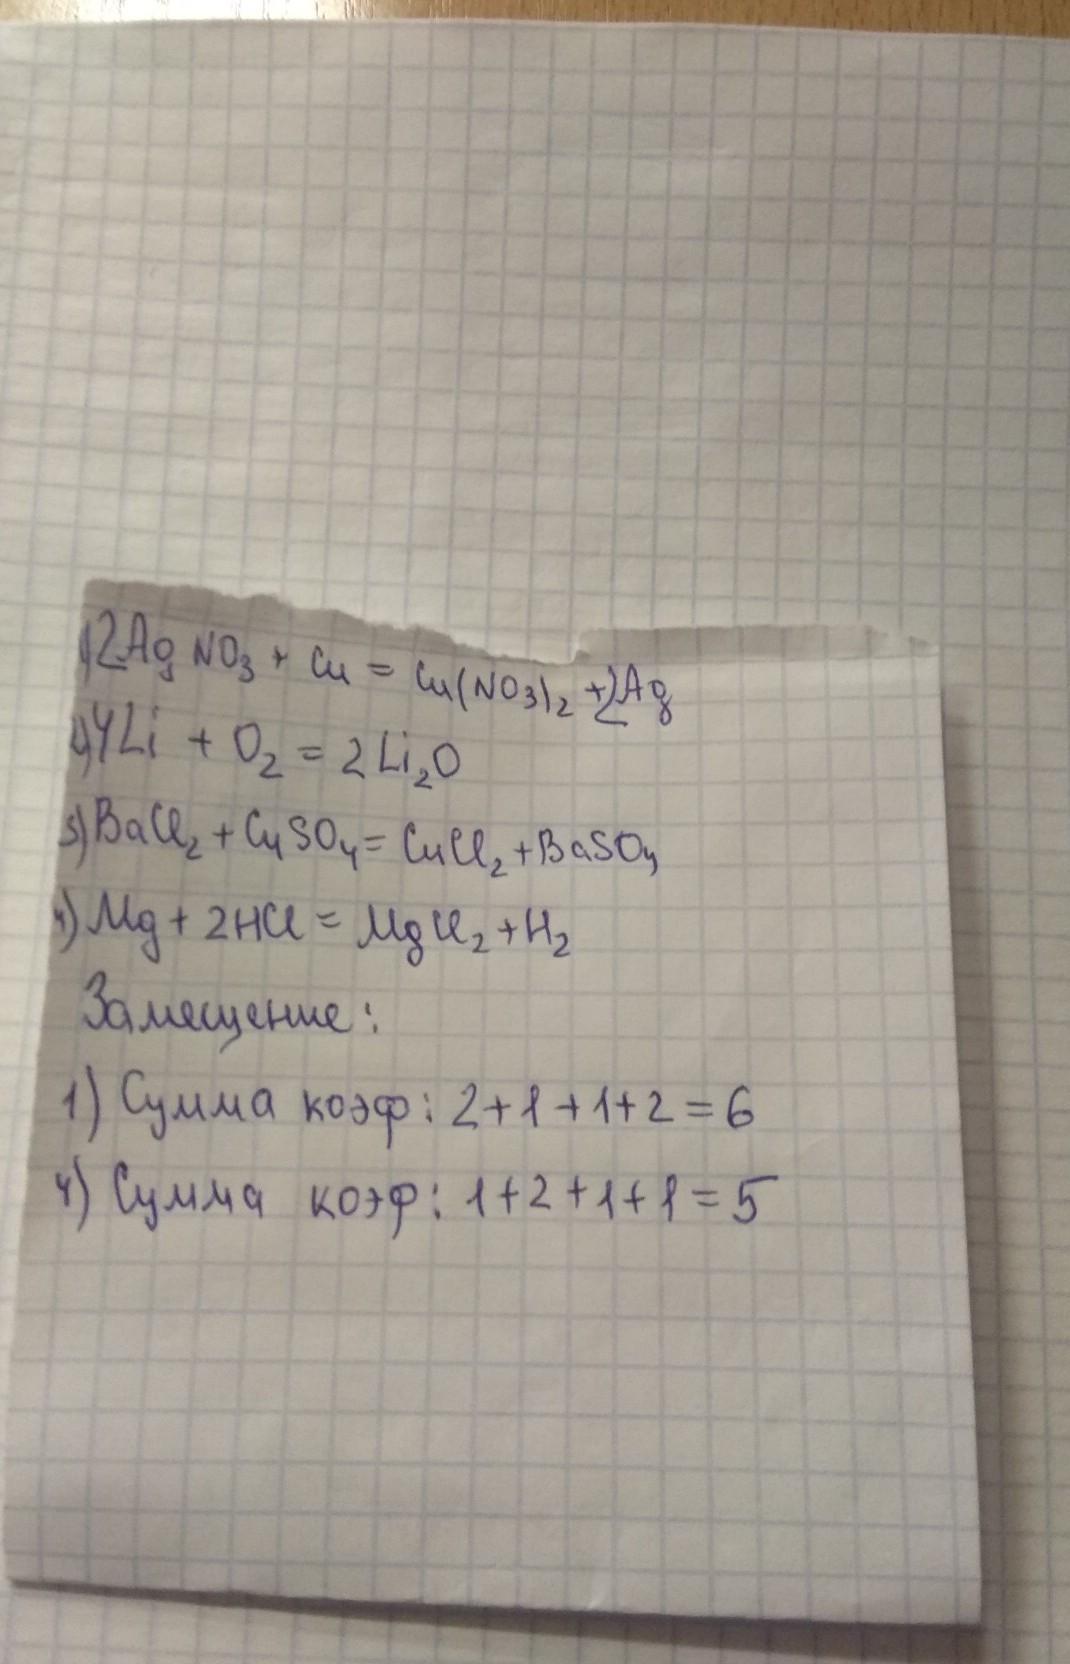 1) 2AgNO₃ + Cu = Cu(NO₃)₂ + 2Ag
2) 4Li + O₂ = 2Li₂O
3) BaCl₂ + CuSO₄ = CuCl₂ + BaSO₄
4) Mg + 2HCl = MgCl₂ + H₂
Замещение:
1) Сумма коэф: 2+1+1+2=6
4) Сумма коэф: 1+2+1+1=5